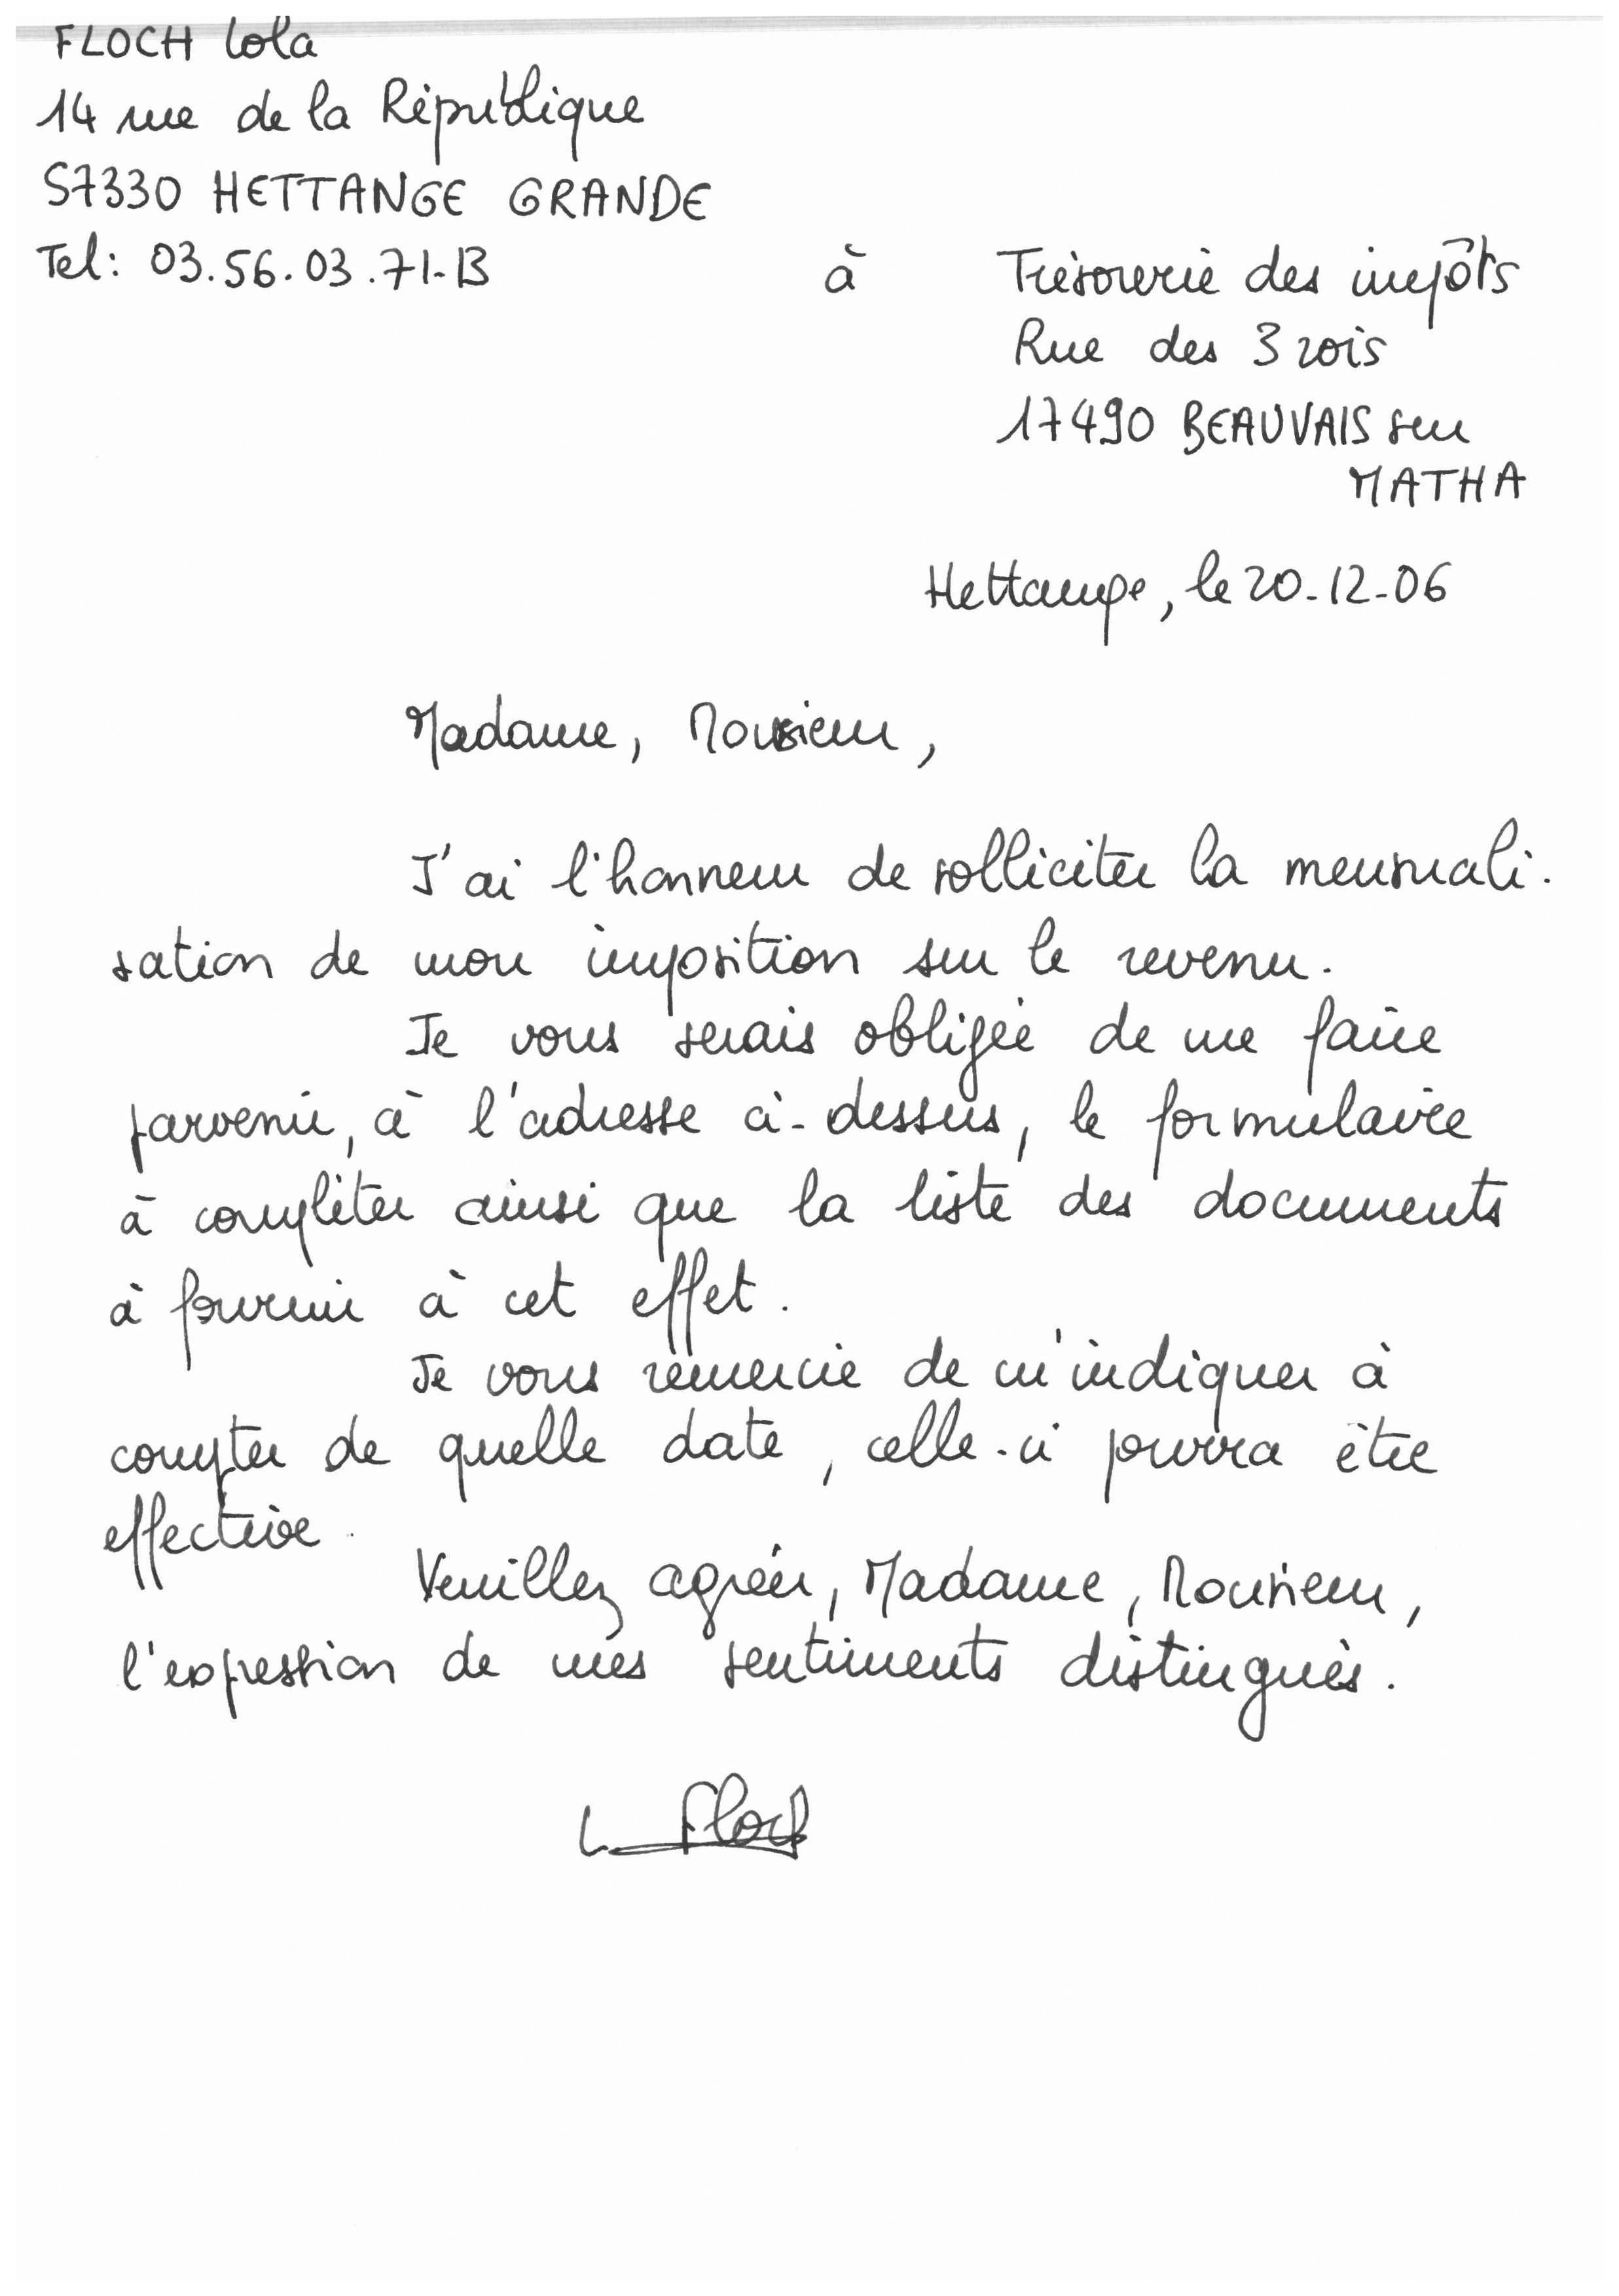 FLOCH Lola
14 rue de la République
57330 HETTANGE GRANDE
Tel: 03.56.03.71.13
à
Trésorerie des impôts
Rue des 3 rois
17490 BEAUVAIS sur
MATHA
Hettange, le 20-12-06
Madame, Monsieur,
J'ai l'honneur de solliciter la mensuali-
sation de mon imposition sur le revenu.
Je vous serais obligée de me faire
parvenir, à l'adresse ci-dessus, le formulaire
à compléter ainsi que la liste des documents
à fournir à cet effet.
Je vous remercie de m'indiquer à
compter de quelle date, celle-ci pourra être
effective.
Veuillez agréer, Madame, Monsieur,
l'expression de mes sentiments distingués.
L. Floch